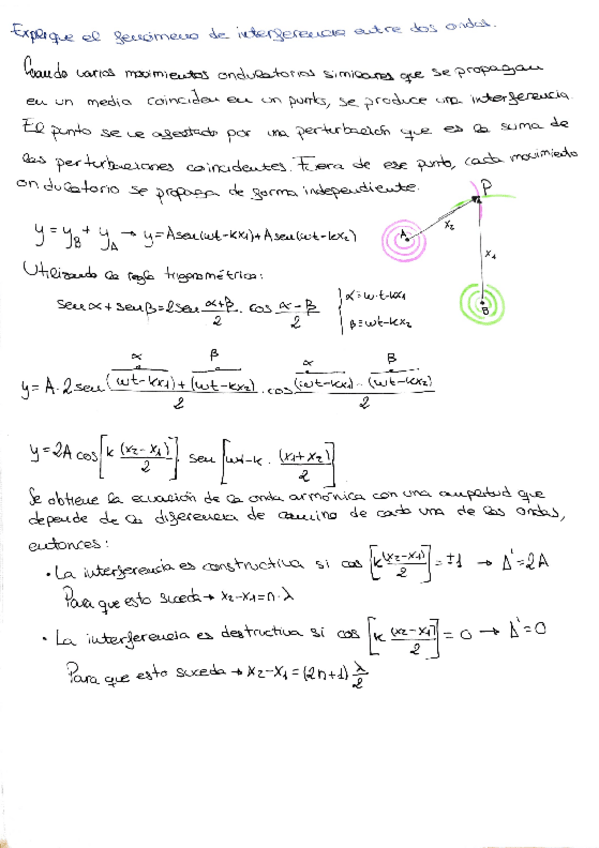 Explique el fenómeno de interferencia entre dos ondas.
Cuando varios movimientos ondulatorios similares que se propagan
en un medio coinciden en un punto, se produce una interferencia.
El punto se ve afectado por una perturbación que es la suma de
las perturbaciones coincidentes. Fuera de ese punto, cada movimiento
ondulatorio se propaga de forma independiente.
P
A
x₂
x₁
B
y = y_B + y_A → y = A sen(wt-kx1) + A sen(wt-kx2)
Utilizando la regla trigonométrica:
sen α + sen β = 2 sen (α+β)/2 . cos (α-β)/2
α = w·t-kx1
β = wt-kx2
α β α β
y = A·2 sen ((wt-kx1)+(wt-kx2))/2 . cos ((wt-kx1)-(wt-kx2))/2
y = 2A cos [k (x2-x1)/2] . sen [wt-k . (x1+x2)/2]
Se obtiene la ecuación de la onda armónica con una amplitud que
depende de la diferencia de camino de cada una de las ondas,
entonces:
· La interferencia es constructiva si cos [k (x2-x1)/2] = ±1 → A' = 2A
Para que esto suceda → x2-x1 = n·λ
· La interferencia es destructiva si cos [k (x2-x1)/2] = 0 → A' = 0
Para que esto suceda → x2-x1 = (2n+1) λ/2